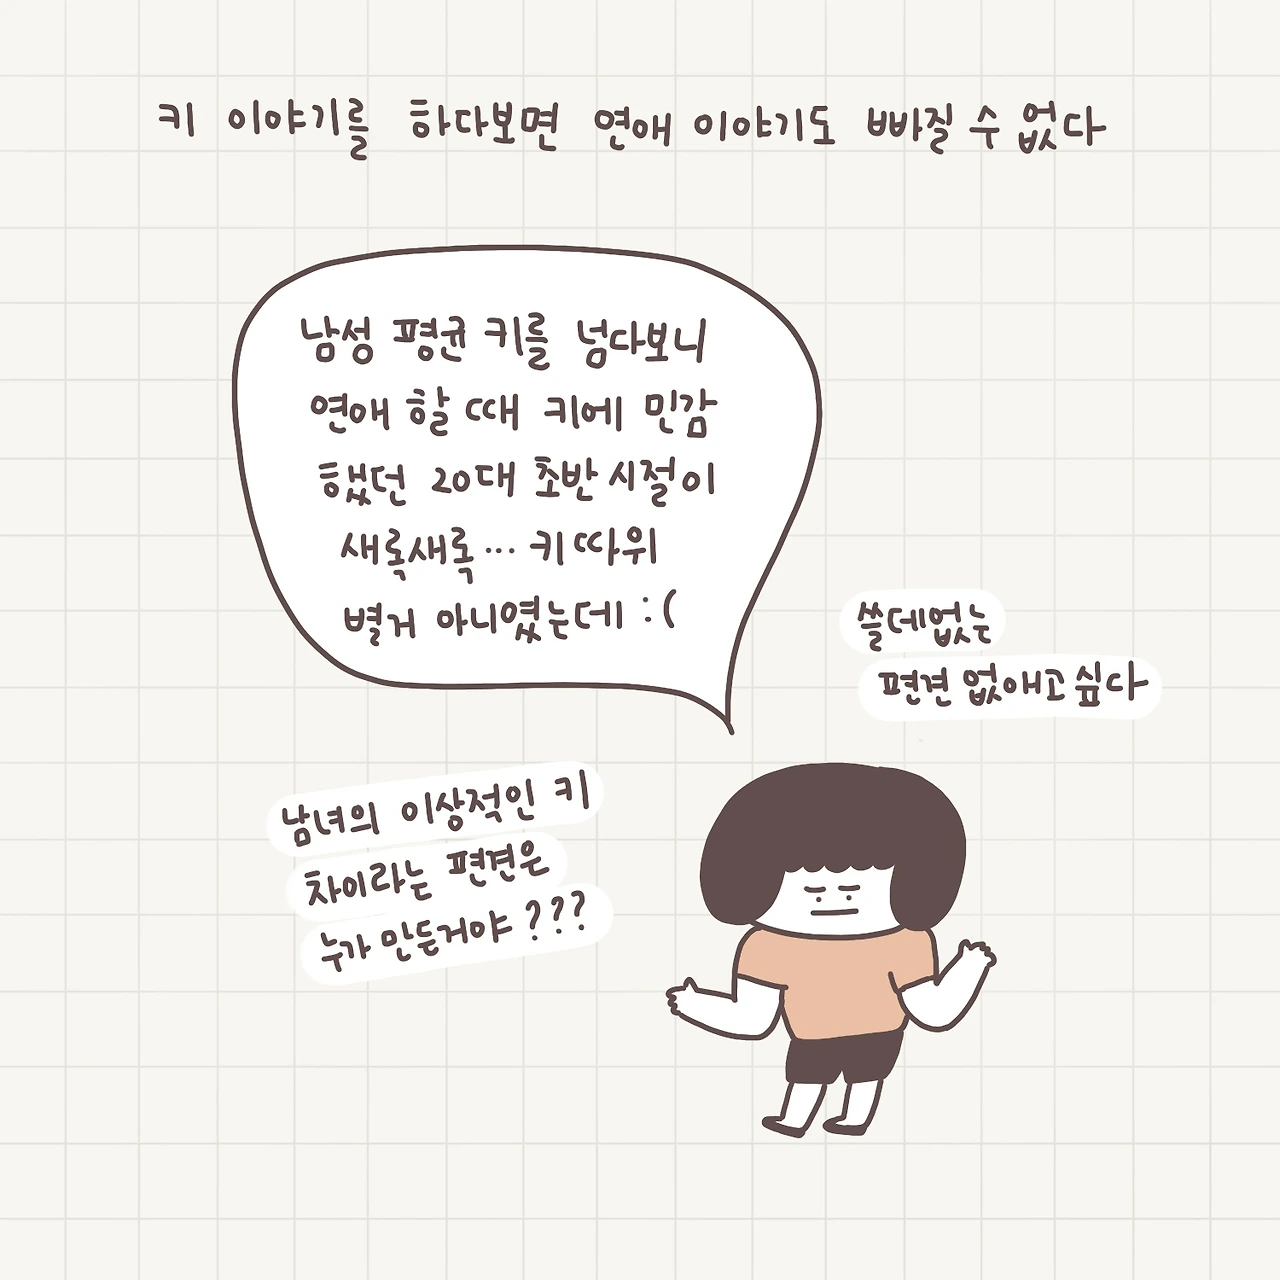 키 이야기를 하다보면 연애 이야기도 빠질 수 없다
남성 평균 키를 넘다보니
연애 할 때 키에 민감
했던 20대 초반 시절이
새록새록... 키 따위
별거 아니였는데 :(
쓸데없는
편견 없애고 싶다
남녀의 이상적인 키
차이라는 편견은
누가 만든거야???